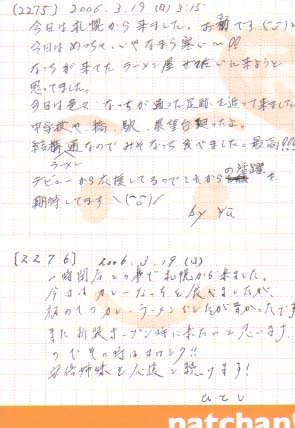 [2275] 2006.3.19(日) 3:15
今日は札幌から来ました。お勤です(^o^)
今日はめっちゃ、いやなまら寒い〜!!
なっちが来てたラーメン屋ぜったいに来ようと
思ってました。
今日は色々、なっちが通った足跡を辿って来ました
中学校や、橋、駅、展望台 寄ったよ。
結構通なのでみそなっち食べました。最高!!!
ラーメン
デビューから応援してるのでこれからの活躍を
期待してます \(^o^)/
by Yū
[2276] 2006.3.19(日)
閉店との事で札幌から来ました。
今日はカレーなっちを食べましたが、
カレーラーメンでしたが旨かったです
また新装オープン時に来たいと思います。
ので その時はヨロシク!!
安倍姉妹を応援し続けます!
ひとし
natchan